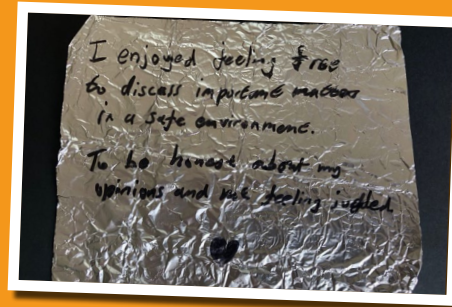 I enjoyed feeling free
to discuss important matters
in a safe environment.
To be honest about my
opinions and not feeling judged